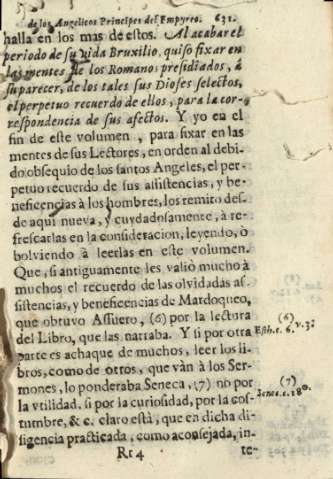 de los Angelicos Principes del Empyreo. 631.
halla en los mas de estos. Al acabar el
periodo de su vida Bruxilio, quiso fixar en
las mentes de los Romanos presidiados, à
su parecer, de los tales sus Dioses selectos,
el perpetuo recuerdo de ellos, para la cor-
respondencia de sus afectos. Y yo en el
fin de este volumen, para fixar en las
mentes de sus Lectores, en orden al debi-
do obsequio de los santos Angeles, el per-
petuo recuerdo de sus assistencias, y be-
neficencias à los hombres, los remito des-
de aqui nueva, y cuydadosamente, à re-
frescarlas en la consideracion, leyendo, ò
bolviendo à leerlas en este volumen.
Que, si antiguamente les valiò mucho à
muchos el recuerdo de las olvidadas as-
sistencias, y beneficencias de Mardoqueo,
que obtuvo Assuero, (6) por la lectura
del Libro, que las narraba. Y si por otra
parte es achaque de muchos, leer los li-
bros, como de otros, que vàn à los Ser-
mones, lo ponderaba Seneca, (7) no por
la vtilidad, si por la curiosidad, por la cos-
tumbre, & c. claro està, que en dicha di-
ligencia practicada, como aconsejada, in-
Rr 4 te-
(6)
Esth. c. 6. v. 3.
(7)
Senec. c. 180.